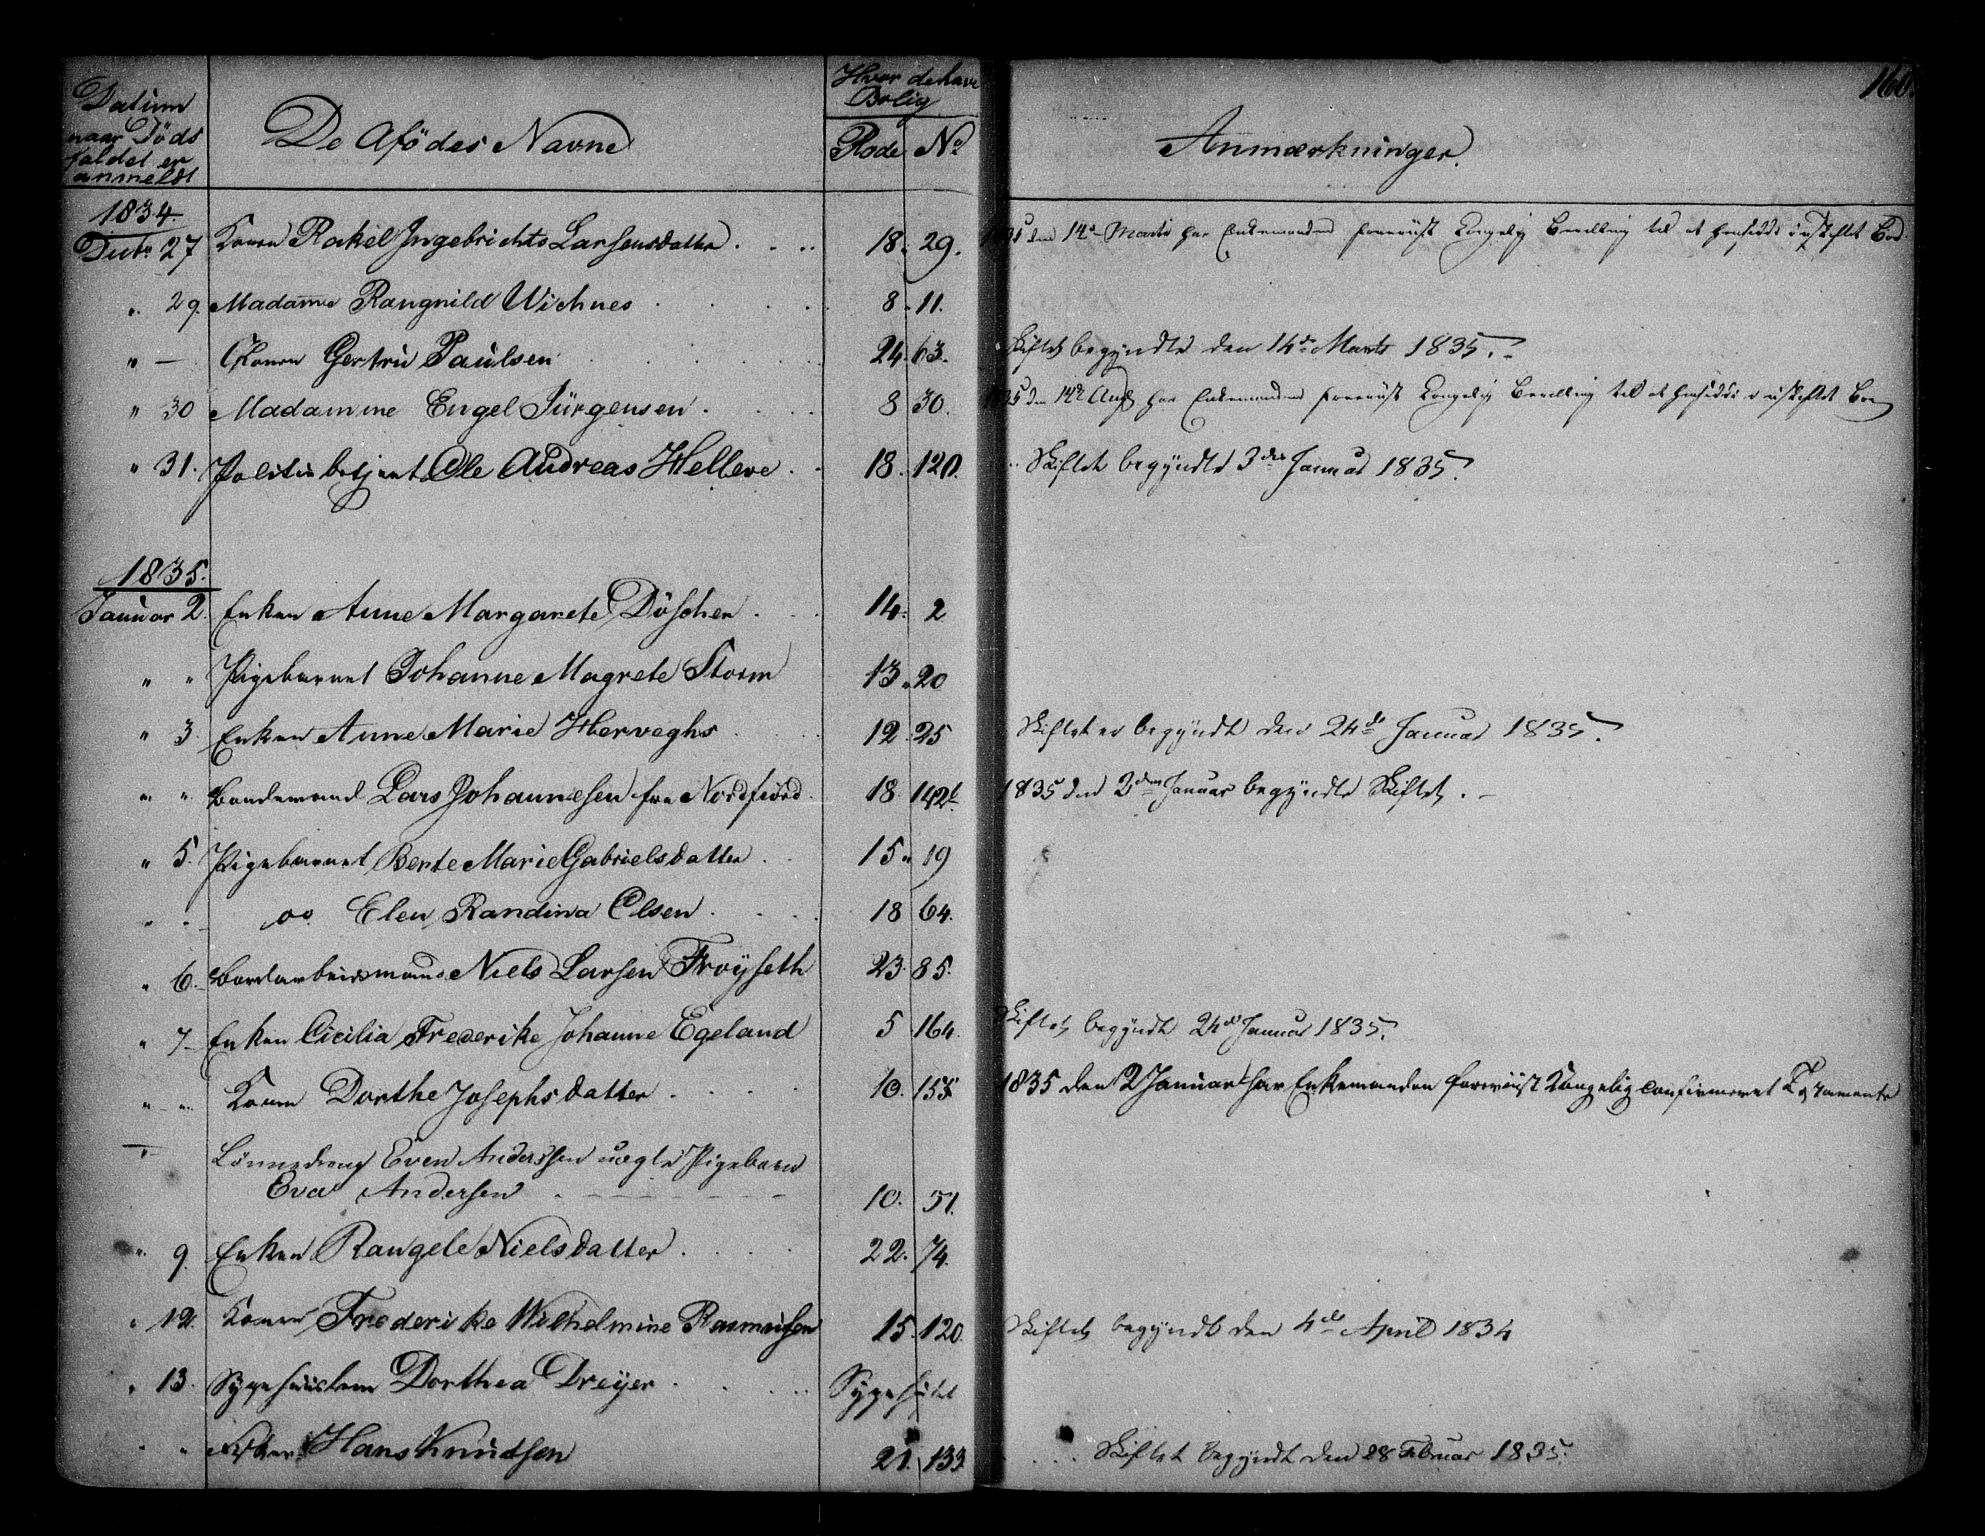 160.
Datum
naar Döds
faldet er
anmeldt
De Afödes Navne
Hvor de have
Bolig
Rode No
Anmærkninger.
1834.
27 Konen Rakel Ingebrichts Larsensdatter 18. 29. 1835 den 14de Marts har Enkemanden foreviist Kongelig Bevilling til at hensidde i uskiftet Boe
" 29. Madame Rangnild Wichnes 8. 11.
" — Konen Gertru Paulsen 24. 63. Skiftet begyndte den 14de Marts 1835.
" 30 Madamme Engel Jürgensen 8 30. 1835 den 14de Aug har Enkemanden foreviist Kongelig Bevilling till at hensidde i uskiftet Boe
" 31. Politie betjent Ole Andreas Helleve 18. 120. Skiftet begyndte 3die Januar 1835.
1835.
Januar 2. Enken Anne Margarete Döschen 14. 2
" " Pigebarnet Johanne Magrete Storm 13. 20
" 3. Enken Anne Marie Herveghs 12. 25 Skiftet er begyndt den 24de Januar 1835.
" " Bondemand Lars Johannesen fra Nordfiord 18. 142b 1835 den 2den Januar begyndte Skiftet.
" 5. Pigebarnet Berte Marie Gabrielsdatter 15. 19
" " do Elen Randina Olsen 18 64.
" 6. Bordarbeidsmand Niels Larsen Fröyseth 23. 85.
" 7. Enken Cicilia Frederike Johanne Egeland 5 164. Skiftet begyndt 24de Januar 1835.
" " Konen Dorthe Josephsdatter 10. 155 1835 den 2 Januar har Enkemanden foreviist Kongelig confirmeret Testamente
Lönnedreng Even Anderssen uægte Pigebarn
Eva Andersen 10. 51.
" 9. Enken Rangele Nielsdatter 22. 74.
" 12. Konen Frederikke Wilhelmine Rasmusen 15. 120. Skiftet begyndt den 4de April 1834
" 13. Sygehuuslem Dorthea Dreyer Sygehuset
" " Hans Knudsen 21. 133 Skiftet begyndt den 28 Februar 1835.